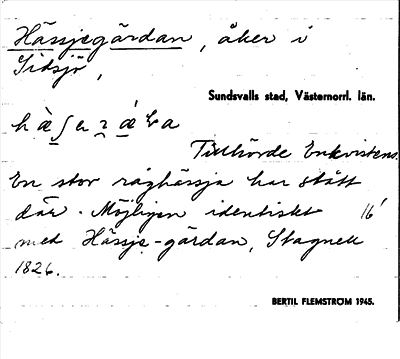 Hässjegärdan, åker i
Sidsjö,
Sundsvalls stad, Västernorrl. län.
Tillhörde Enkvistens.
En stor råghässja har stått
där. Möjligen identiskt 16/
med Hässje-gärdan, Stagnell
1826.
BERTIL FLEMSTRÖM 1945.